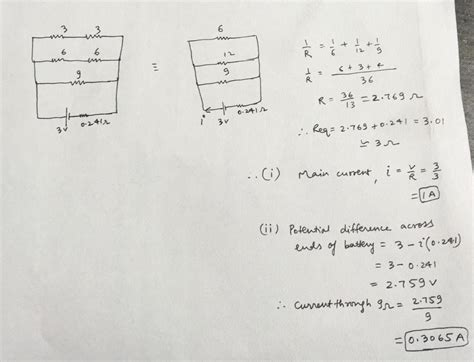 3 3
6 6
9
3V 0.241Ω
≡
6
12
9
i 3V 0.241Ω
1/R = 1/6 + 1/12 + 1/9
1/R = 6+3+4/36
R = 36/13 = 2.769 Ω
∴ Req = 2.769 + 0.241 = 3.01
≃ 3Ω
∴ (i) Main current, i = V/R = 3/3
= 1A
(ii) Potential difference across
ends of battery = 3 - i(0.241)
= 3 - 0.241
= 2.759 V
∴ Current through 9Ω = 2.759/9
= 0.3065 A